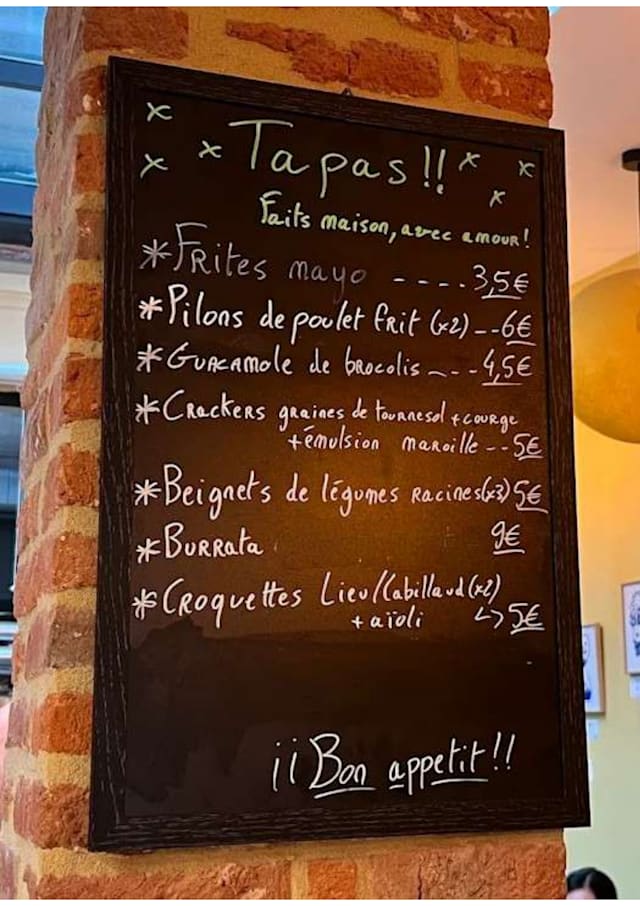 Tapas!!
Faits maison, avec amour!
*Frites mayo ---- 3,5€
*Pilons de poulet frit (x2) -- 6€
*Guacamole de brocolis --- 4,5€
*Crackers graines de tournesol + courge
+émulsion maroille -- 5€
*Beignets de légumes racines (x3) 5€
*Burrata 9€
*Croquettes Lieu/Cabillaud (x2)
+ aïoli ↳ 5€
¡¡Bon appetit!!